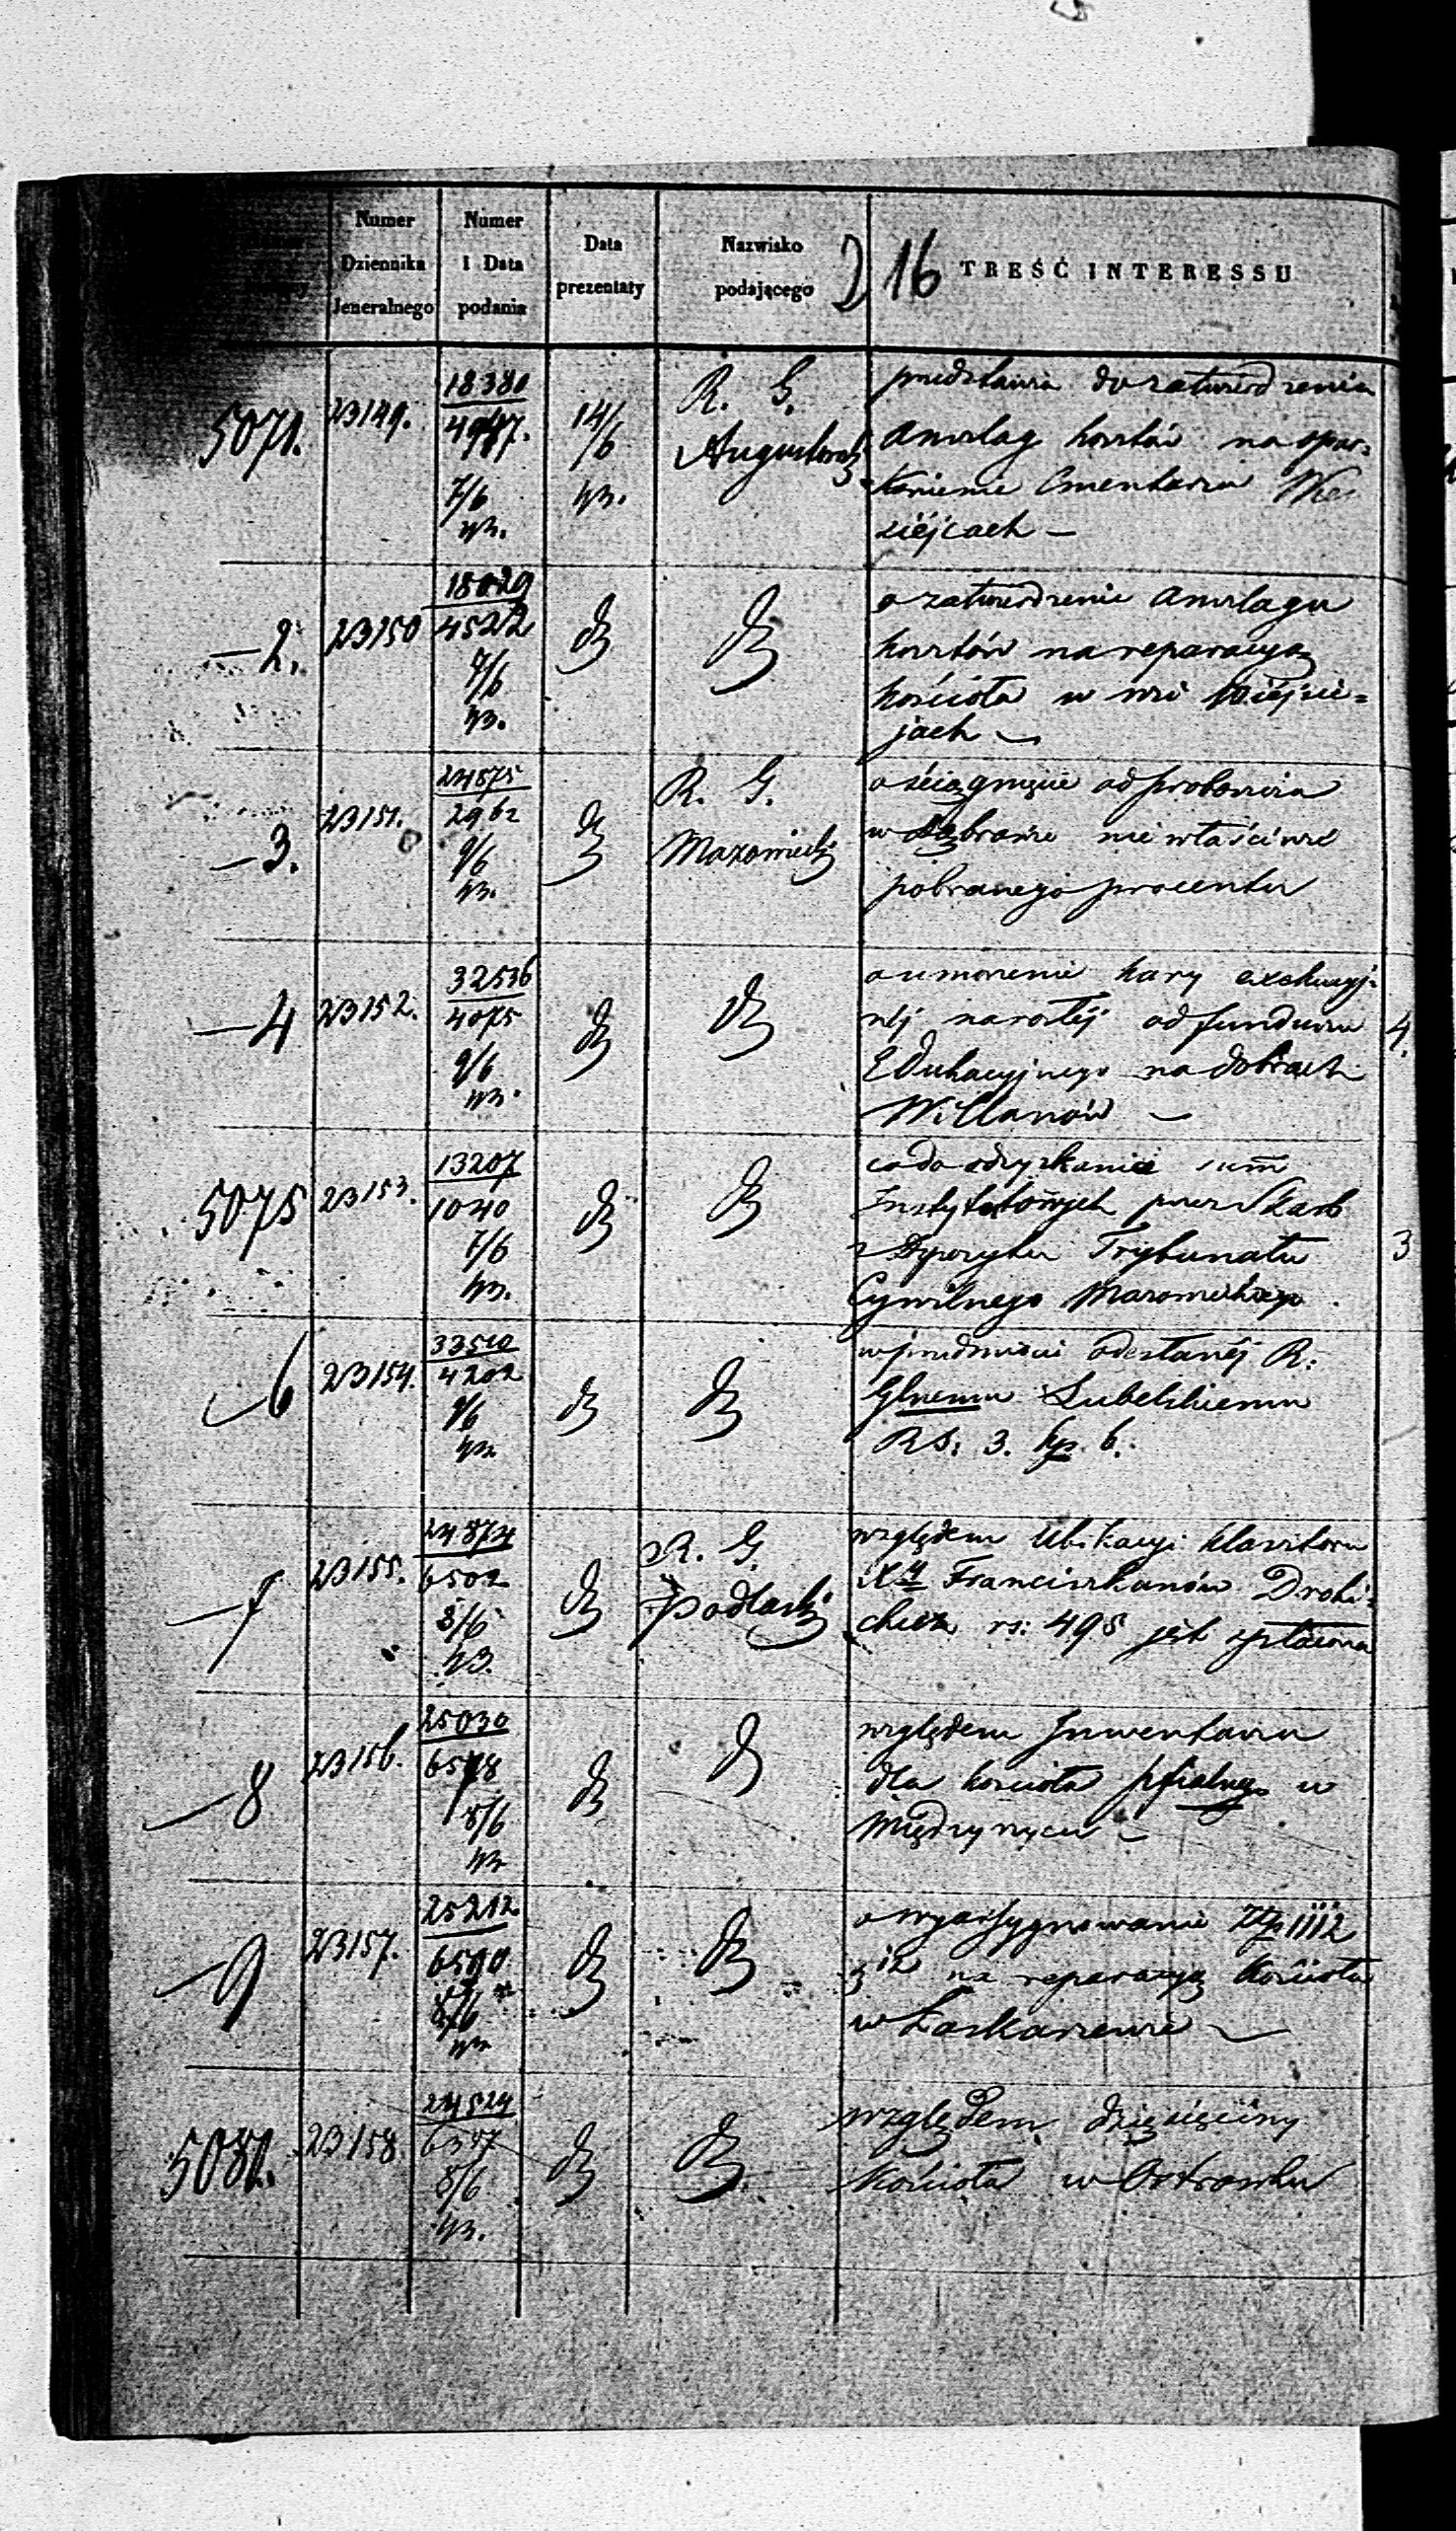 Numer Dziennika Jeneralnego
Numer i Data podania
Data prezentaty
Nazwisko podającego
216
TREŚĆ INTERESSU
5071. 23149. 18380 7/6 43. 14/6 43. R. G. Augustowski
przedstawia do zatwierdzenia
Anszlag kosztów na opar=
kanienie Cmentarza
ziéjcach —
—2. 23150 18029 4522 7/6 43. dto dto
o zatwierdzenie Anszlagu
kosztów na reparacyą
kościoła w wsi Wiéjsie=
jach —
—3. 23151. 24875 2962 9/6 43. dto R. G. Mazowiecki
o ściągnięcie od proboszcza
w nie właściwie
pobranego procentu
—4 23152. 32536 4075 9/6 43. dto dto
o umorzenie kary exekucyj=
néj narosłéj od funduszu
Edukacyjnego na dobrach
Willanów —
4.
5075 23153. 13207 1040 7/6 43. dto dto
co do odzyskania summ
Instytutowych przez Skarb
z Depozytu Trybunału
Cywilnego Mazowieckiego
3
—6 23154. 33510 4202 9/6 43. dto dto
w przedmiocie odesłanéj R.
Głnemu Lubelskiemu
RS: 3. kp. 6.
—7 23155. 24874 6502 8/6 43. dto R. G. Podlaski
względem klasztoru
XX Franciszkanów Drohi=
rs: 495 jest
—8 23156. 25030 8/6 43 dto dto
względem Inwentarza
dla kościoła pfialnego w
Międzyrzecu —
—9 23157. 25212 6590 8/6 43 dto dto
o wyassygnowanie
na reparacyą kościoła
w Łaskarzewie —
23158 24524 6387 8/6 43. dto dto
względem dziesięciny
kościoła w Ostrówku